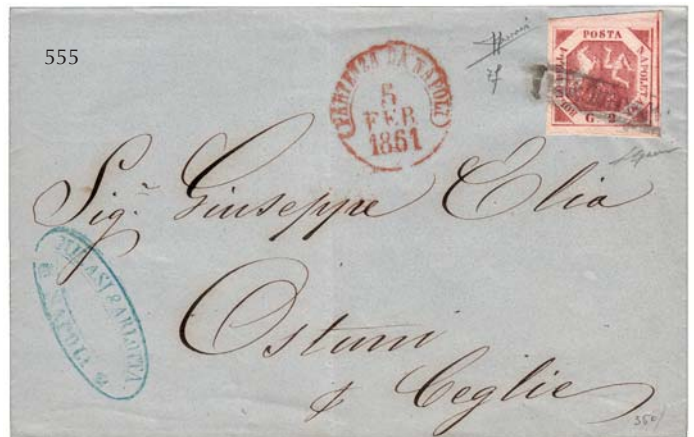 555
PARTENZA DA NAPOLI
5
FEB
1861
POSTA
NAPOLETANA
G 2
Sig.r Giuseppe Elia
Ostuni
p Ceglie
& ARLOTTA
NAPOLI
350